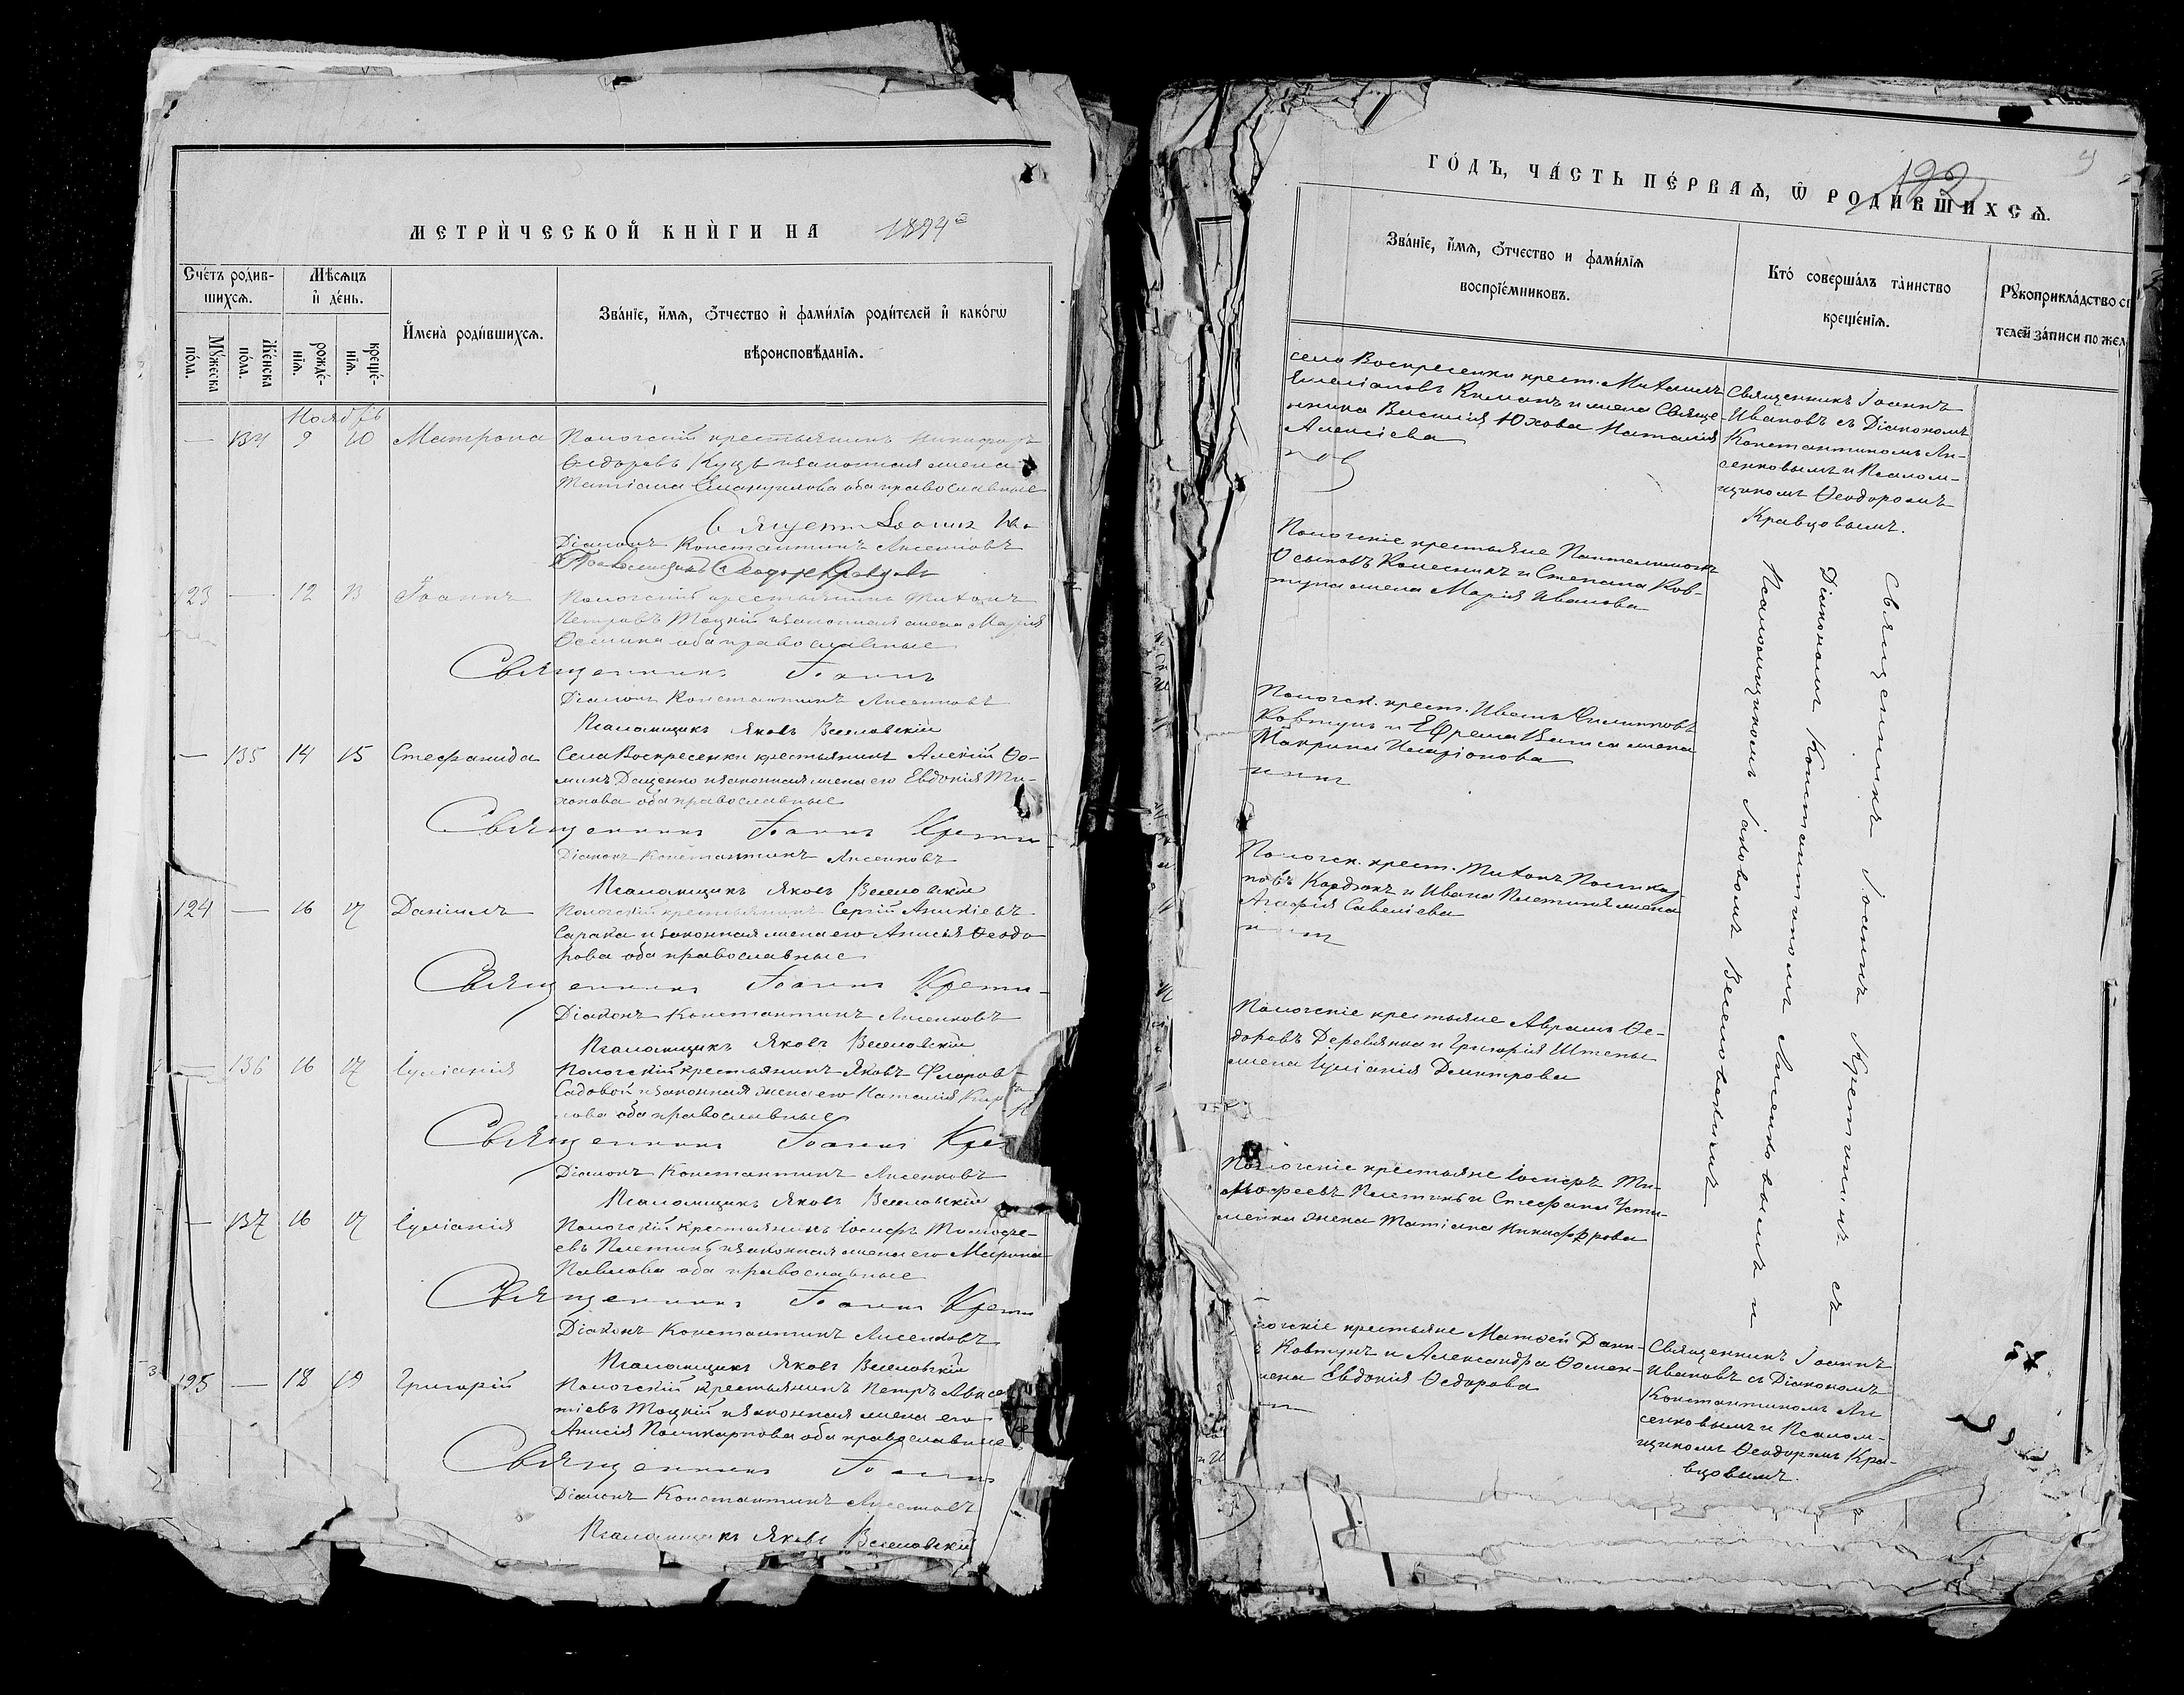 МЕТРИ́ЧЕСКОЙ КНИ́ГИ НА 1894
Сче́тъ роди́в-
шихсѧ.
Мѣ́сѧцъ
и҆ де́нь.
Мꙋ́жеска
по́ла.
Же́нска
по́ла.
рожде́-
нїѧ.
креще́-
нїѧ.
И҆мена̀ роди́вшихсѧ.
Зва́нїе, и҆́мѧ, ѻ҆́тчество и҆ фами́лїѧ роди́телей и҆ како́гѡ
вѣроисповѣ́данїѧ.
Ноябрь
— 134 9 10 Матрона Пологскій крестьянинъ Никифоръ
Ѳедоровъ Куцъ и законная жена
Татіана Емануилова оба православные
Діаконъ Константинъ Лисенковъ
123 — 12 13 Іоаннъ Пологскій крестьянинъ Тихонъ
Петровъ Тоцкій и законная жена Марія
Ѳомина оба православные
Священникъ Іоаннъ
Діаконъ Константинъ Лисенковъ
Псаломщикъ Яковъ Веселовскій
— 135 14 15 Стефанида Села Воскресенки крестьянинъ Алексій Ѳо-
минъ Даценко и законная жена его Евдокія Ти-
хонова оба православные
Священникъ Іоаннъ Крети
Діаконъ Константинъ Лисенковъ
Псаломщикъ Яковъ Веселовскій
124 — 16 17 Даніилъ Пологскій крестьянинъ Сергій Аникіевъ
Сарака и законная жена его Анисія Ѳеодо-
рова оба православные
Священникъ Іоаннъ Крети
Діаконъ Константинъ Лисенковъ
Псаломщикъ Яковъ Веселовскій
— 136 16 17 Іуліанія Пологскій крестьянинъ Яковъ Флоровъ
Садовой и законная жена его Наталія
оба православные
Священникъ Іоаннъ Кре
Діаконъ Константинъ Лисенковъ
Псаломщикъ Яковъ Веселовскій
— 137 16 17 Іуліанія Пологскій крестьянинъ Іосифъ Тимоѳе-
евъ Плетинь и законная жена его Марина
Павлова оба православные
Священникъ Іоаннъ Крети
Діаконъ Константинъ Лисенковъ
Псаломщикъ Яковъ Веселовскій
125 — 18 19 Григорій Пологскій крестьянинъ Петръ
Тоцкій и законная жена его
Анисія Поликарпова оба православные
Священникъ Іоаннъ
Діаконъ Константинъ Лисенковъ
Псаломщикъ Яковъ Веселовскій
ГО́ДЪ, ЧА́СТЬ ПЕ́РВАѦ, Ѡ҆ РОДИ́ВШИХСѦ.
192
Зва́нїе, и҆́мѧ, ѻ҆́тчество и фами́лїѧ
воспрїе́мниковъ.
Кто̀ соверша́лъ та́инство
креще́нїѧ.
Рꙋкоприкла́дство
телей за́писи по
села Воскресенки крест. Михаилъ
Емеліановъ Книманъ и жена Священ-
ника Василія Юхова Наталія
Алексіева
Священникъ Іоаннъ
Ивановъ съ Діакономъ
Константиномъ Ли-
сенковымъ и Псалом-
щикомъ Ѳеодоромъ
Кравцовымъ.
Пологскіе крестьяне Пантелимонъ
Осыповъ Колесникъ и Степана Ков-
туна жена Марія Иванова
Пологск. крест. Иванъ Филиповъ
Ковтунъ и Ефрема жена
Макрина Иларіонова
Пологск. крест. Тихонъ Поликар-
повъ Кардюкъ и Ивана Плетиня жена
Агафія Савеліева
Пологскіе крестьяне Аврамъ Ѳе-
доровъ Деревянка и Григорія Штепы
жена Іуліанія Дмитрова
Пологскіе крестьяне Іосифъ Ти-
моѳеевъ Плетинь и Стефана Усти-
менка жена Татіана Никифорова
Священникъ Іоаннъ Кретининъ съ
Діакономъ Константиномъ Лисенковымъ и
Псаломщикомъ Іаковомъ Веселовскимъ
логскіе крестьяне Матѳей Дани-
Ковтунъ и Александра Ѳомен-
жена Евдокія Ѳедорова
Священникъ Іоаннъ
Ивановъ съ Діакономъ
Константиномъ Ли
сенковымъ и Псалом-
щикомъ Ѳеодоромъ Кра-
вцовымъ.